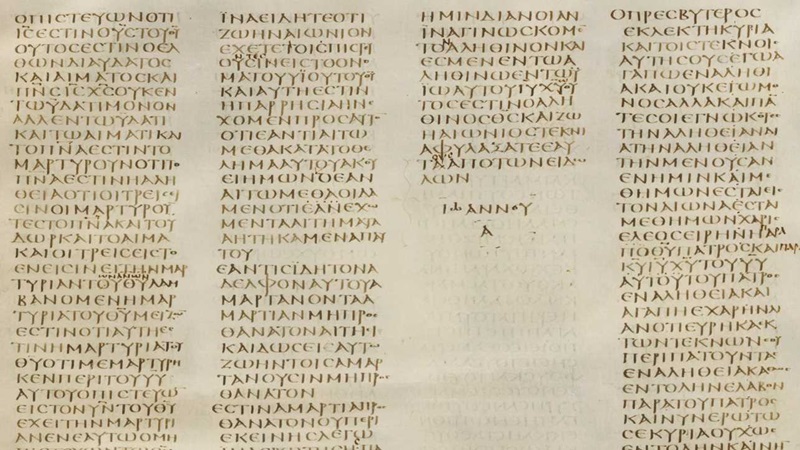 ΟΠΙCΤΕΥΩΝΟΤΙ
ΙCΕCΤΙΝΟΥCΤΟΥΘΥ
ΟΥΤΟCΕCΤΙΝΟΕΛ
ΘΩΝΔΙΑΥΔΑΤΟC
ΚΑΙΑΙΜΑΤΟCΚΑΙ
ΠΝCΙCΧCΟΥΚΕΝ
ΤΩΥΔΑΤΙΜΟΝΟΝ
ΑΛΛΕΝΤΩΥΔΑΤΙ
ΚΑΙΤΩΑΙΜΑΤΙΚΑΙ
ΤΟΠΝΑΕCΤΙΝΤΟ
ΜΑΡΤΥΡΟΥΝΟΤΙΤΟ
ΠΝΑΕCΤΙΝΗΑΛΗ
ΘΕΙΑΟΤΙΟΙΤΡΕΙCΕΙ
CΙΝΟΙΜΑΡΤΥΡΟΥ
ΤΕCΤΟΠΝΑΚΑΙΤΟΥ
ΔΩΡΚΑΙΤΟΑΙΜΑ
ΚΑΙΟΙΤΡΕΙCΕΙCΤΟ
ΕΝΕΙCΙΝΕΙΤΗΝΜΑΡ
ΤΥΡΙΑΝΤΟΥΘΥΛΑΜ
ΒΑΝΟΜΕΝΗΜΑΡ
ΤΥΡΙΑΤΟΥΘΥΜΕΙΖΩ
ΕCΤΙΝΟΤΙΑΥΤΗΕ
CΤΙΝΗΜΑΡΤΥΡΙΑΤΟΥ
ΘΥΟΤΙΜΕΜΑΡΤΥΡΗ
ΚΕΝΠΕΡΙΤΟΥΥΥ
ΑΥΤΟΥΟΠΙCΤΕΥΩ
ΕΙCΤΟΝΥΝΤΟΥΘΥ
ΕΧΕΙΤΗΝΜΑΡΤΥΡΙ
ΑΝΕΝΕΑΥΤΩΟΜΗ
ΙΝΑΕΙΔΗΤΕΟΤΙ
ΖΩΗΝΑΙΩΝΙΟΝ
ΕΧΕΤΕΟΙΠΙCΤΕΥ
ΜΑΤΟΥΥΙΟΥΤΟΥΘΥ
ΚΑΙΑΥΤΗΕCΤΙΝ
ΗΠΑΡΡΗCΙΑΗΝΕ
ΧΟΜΕΝΠΡΟCΑΥΤΟ
ΟΤΙΕΑΝΤΙΑΙΤΩ
ΜΕΘΑΚΑΤΑΤΟΘΕ
ΛΗΜΑΑΥΤΟΥΑΚΟΥ
ΕΙΗΜΩΝΟΙΔΕΑΝ
ΑΙΤΩΜΕΘΑΟΙΔΑ
ΜΕΝΟΤΙΕΑΝΕΧΟ
ΜΕΝΤΑΑΙΤΗΜΑΤΑ
ΑΗΤΗΚΑΜΕΝΑΠΑΥ
ΤΟΥ
ΕΑΝΤΙCΙΔΗΤΟΝΑ
ΔΕΛΦΟΝΑΥΤΟΥΑ
ΜΑΡΤΑΝΟΝΤΑΑ
ΜΑΡΤΙΑΝΜΗΠΡΟC
ΘΑΝΑΤΟΝΑΙΤΗCΙ
ΚΑΙΔΩCΕΙCΑΥΤΩ
ΖΩΗΝΤΟΙCΑΜΑΡ
ΤΑΝΟΥCΙΝΜΗΠΡΟC
ΘΑΝΑΤΟΝ
ΕCΤΙΝΑΜΑΡΤΙΑΠΡΟC
ΘΑΝΑΤΟΝΟΥΠΕΡΙ
ΕΚΕΙΝΗCΛΕΓΩ
ΗΜΙΝΔΙΑΝΟΙΑΝ
ΙΝΑΓΙΝΩCΚΟΜΕ
ΤΟΑΛΗΘΙΝΟΝΚΑΙ
ΕCΜΕΝΕΝΤΩΑ
ΛΗΘΙΝΩΕΝΤΩΥ
ΙΩΑΥΤΟΥΙΥΧΥ
ΤΟCΕCΤΙΝΟΑΛΗ
ΘΙΝΟCΘCΚΑΙΖΩ
ΗΑΙΩΝΙΟCΤΕΚΝΙ
ΑΦΥΛΑΞΑΤΕΕΑΥ
ΤΑΑΠΟΤΩΝΕΙΔΩ
ΛΩΝ
ΙΩΑΝΝΟΥ
Α
ΟΠΡΕCΒΥΤΕΡΟC
ΕΚΛΕΚΤΗΚΥΡΙΑ
ΚΑΙΤΟΙCΤΕΚΝΟΙC
ΑΥΤΗCΟΥCΕΓΩΑ
ΓΑΠΩΕΝΑΛΗΘΙ
ΑΚΑΙΟΥΚΕΓΩΜΟ
ΝΟCΑΛΛΑΚΑΙΠΑ
ΤΕCΟΙΕΓΝΩΚΟΤΕC
ΤΗΝΑΛΗΘΕΙΑΝΔΙΑ
ΤΗΝΑΛΗΘΕΙΑΝ
ΤΗΝΜΕΝΟΥCΑΝ
ΕΝΗΜΙΝΚΑΙΜΕ
ΘΗΜΩΝΕCΤΑΙΕΙC
ΤΟΝΑΙΩΝΑΕCΤΑΙ
ΜΕΘΗΜΩΝΧΑΡΙC
ΕΛΕΟCΕΙΡΗΝΗΠΑΡΑ
ΘΥΠΑΤΡΟCΚΑΙΠΑΡΑ
ΚΥΙΥΧΥΤΟΥΥΥ
ΑΥΤΟΥΤΟΥΠΑΤΡΟC
ΕΝΑΛΗΘΕΙΑΚΑΙ
ΑΓΑΠΗΕΧΑΡΗΝΛΙ
ΑΝΟΤΙΕΥΡΗΚΑΕΚ
ΤΩΝΤΕΚΝΩΝCΟΥ
ΠΕΡΙΠΑΤΟΥΝΤΑC
ΕΝΑΛΗΘΕΙΑΚΑΘΩC
ΕΝΤΟΛΗΝΕΛΑΒΟΝ
ΠΑΡΑΤΟΥΠΑΤΡΟC
ΚΑΙΝΥΝΕΡΩΤΩ
CΕΚΥΡΙΑΟΥΧΩC
ΕΝΤΟΛΗΝΚΑΙΝΗ